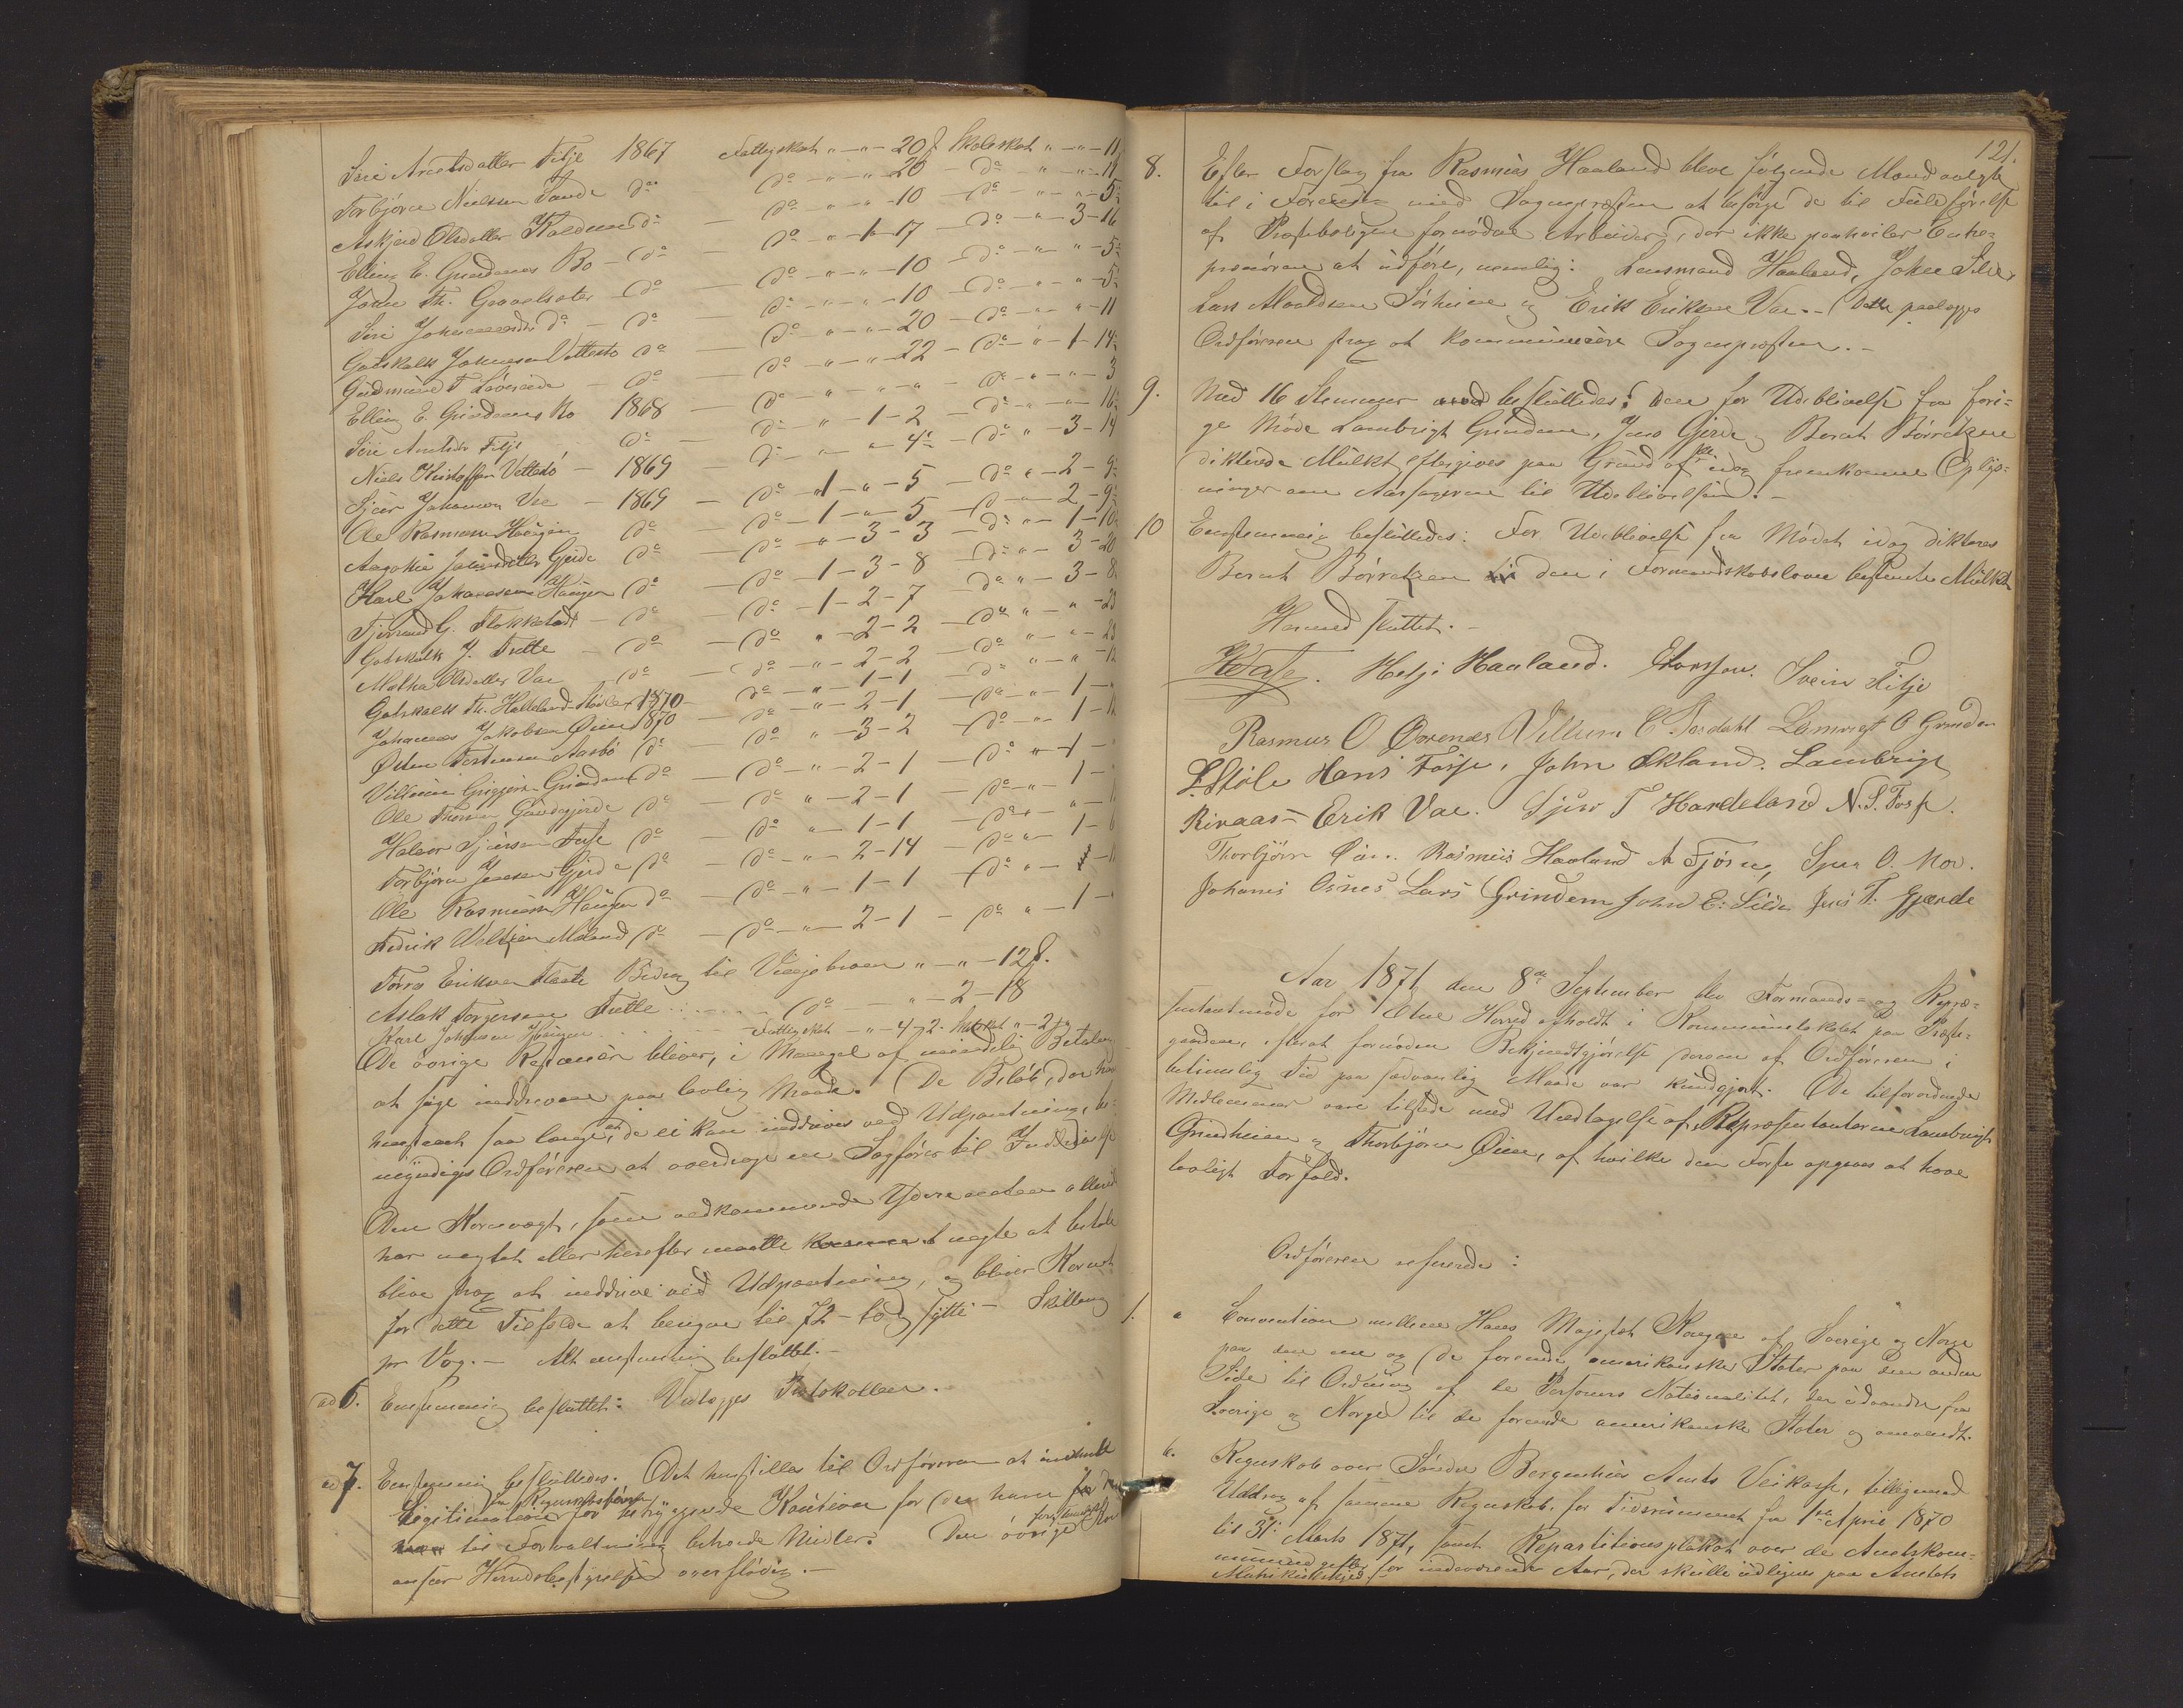 Siri Arnetsdatter Fitje 1867 Fattigskat " – " – 20 ẞ Skoleskat " – " – 11
Torbjörn Nielsen Sande do do " – " – 20 – do – " – " – 11
Askjerd Olsdatter do – do " – " – 10 – do – " – " – 5
Elling E. Grindenes Bo – do – do – " – 1 – 17 – do – " – 3 – 16
John Th. – do – do – " – " – 10 – do – " – " – 5
Siri do – do – do – " – " – 10 – do – " – " – 5
Gotskalk Johnsen do – do – " – " – 20 – do – " – " – 11
Gudmund T. – do – do – " – " – 22 – do – " – 1 – 14
Elling E. Grindenes Bo 1868 – do – " – " – " – do – " – " – 3
Siri Fitje do – do – " – 1 – 2 – do – " – " – 16
Niels Kristoffersen – 1869 – do – " – " – 4 – do – " – 3 – 19
Sjur Johannesen Vae – 1869 – do – 1 – " – 5 – do – " – 2 – 9
Ole Rasmussen Haugen do – do – 1 – " – 5 – do – " – 2 – 9
Aagotha Gjerde do – do – " – 3 – 3 – do " – 1 – 10
Karl Johannesen Haugen do – do – 1 – 3 – 8 – do " – 3 – 20
G. Flokketvedt – do – do – 1 – 2 – 7 – do " – 3 – 8
Gotskalk J. Tutle – do – do " – 2 – 2 – do " – " – 23
Martha Olsdatter Vae – do – do – " – 2 – 2 – do " – " – 23
Gotskalk Th. 1870 – do – " – 1 – 1 do " – " – 12
Johannes Jakobsen Øien 1870 – do – " – 2 – 1 – do – " – 1 – "
Østen Torstensen Aarbö do – do " – 3 – 2 – do – " – 1 – 12
Villum Grindene do – do – " – 2 – 1 – do " – 1 – "
Ole Thorsen do – do " – 2 – 1 – do – " – 1 – "
Halvor Sjursen Fosse do – do " – 1 – 1 – do " – " – 12
Torbjörn Jensen Gjerde do – do – " – 2 – 14 – do " – 1 – 6
Ole Rasmussen Haugen do – do – " – 1 – 1 – do " – " – 12
Fredrik Meland do – do – " – 2 – 1 – do " – 1 – "
Torres Eriksen Flaate Bidrag til " – " – 12 ẞ.
Aslak Torgersen Tutle do – " – 2 – 18
Karl Johnsen Haugen Fattigskat – " – 4 – 2. Skolskat " – 2
De övrige Restancer bliver, i Mangel af mindelig Betaling
at söge inddrevne paa lovlig Maade. De Belöb, der har
henstaaet saa længe, at de ei kan inddrives ved Udpantning, be-
myndiges Ordföreren at overdrage en Sagförer til Inddrivelse
Den Kornvægt, som vedkommende Ydere enten allerede
har nægtet eller herefter maatte nægte at betale
blive strax at inddrive ved Udpantning, og bliver Kornet
for dette Tilfælde at beregne til 72 – to og sytti – Skilling
pr Vog. – Alt enstemmig besluttet. –
ad 6. Enstemmig besluttet: Vedlægges Protokollen.
ad 7. Enstemmig besluttedes. Det henstilles til Ordföreren at indhente
fra Regnskabsföreren
Legitimation for betryggende Kaution for de ham
til Forvaltning betroede Midler. Den övrige
anseer Herredsbestyrelsen overflödig. –
121.
8. Efter Forslag fra Rasmus Haaland bleve fölgende Mænd valgte
til i Forening med Sognepræsten at besörge de til Fuldförelse
af Præsteboligen fornödne Arbeider, der ikke paahviler Entre-
prenören at udföre, nemlig: Lensmand Haaland, John Silde,
Lars Sörheim og Erik Eriksen Vae. – Dette paalægges
Ordföreren strax at kommunicere Sognepræsten. –
9. Med 16 Stemmer besluttedes: Den for Udeblivelse fra fori-
ge Möde Lambrigt Grindene, Jens Gjerde og Berent Börretzen
dikterede Mulkt eftergives paa Grund af de idag fremkomne Oplys-
ninger om Aarsagerne til Udeblivelsen. –
10 Enstemmig besluttedes: For Udeblivelse fra Mödet idag dikteres
Berent Börretzen den i Formandskabsloven bestemte Mulkt
Hermed sluttet. –
Helje Haaland. Svein Fitje
Rasmus O Østrenes Villum C. Lambrigt O Grinden
L. Støle Hans Fosse, John Ekland. Lambrigt
Rivaas – Erik Vae. Sjur T Hardeland N. S. Fosse.
Thorbjörn Øien. Rasmus Haaland A Fjösne, Sjur O. Moe.
Johannes Osnes Lars Grindem John E: Silde Jens T. Gjærde
Aar 1871 den 8de September blev Formands- og Repræ-
sentantmöde for Etne Herred afholdt i Kommunelokalet paa Præste-
gaarden, efterat fornöden Bekjendtgjörelse derom af Ordföreren i
betimelig Tid paa sædvanlig Maade var kundgjort. De tilforordnede
Medlemmer vare tilstede med Undtagelse af Repræsentanterne Lambrigt
Grindheim og Thorbjörn Øien, af hvilke den Förste opgaves at have
lovligt Forfald.
Ordföreren refererede:
1. a Convention mellem Hans Majestæt Kongen af Sverige og Norge
paa den ene og de forenede amerikanske Stater paa den anden
Side til Ordning af de Personers Nationalitet, der udvandre fra
Sverige og Norge til de forenede amerikanske Stater og omvendt.
b. Regnskab over Söndre Bergenhus Amts Veikasse, tilligemed
Uddrag af samme Regnskab, for Tidsrummet fra 1ste April 1870
til 31. Marts 1871, samt Repartitionsplakat over de Amtskom-
muneudgifter for indeværende Aar, der skulle udlignes paa Amtets
Matrikulskyld. –